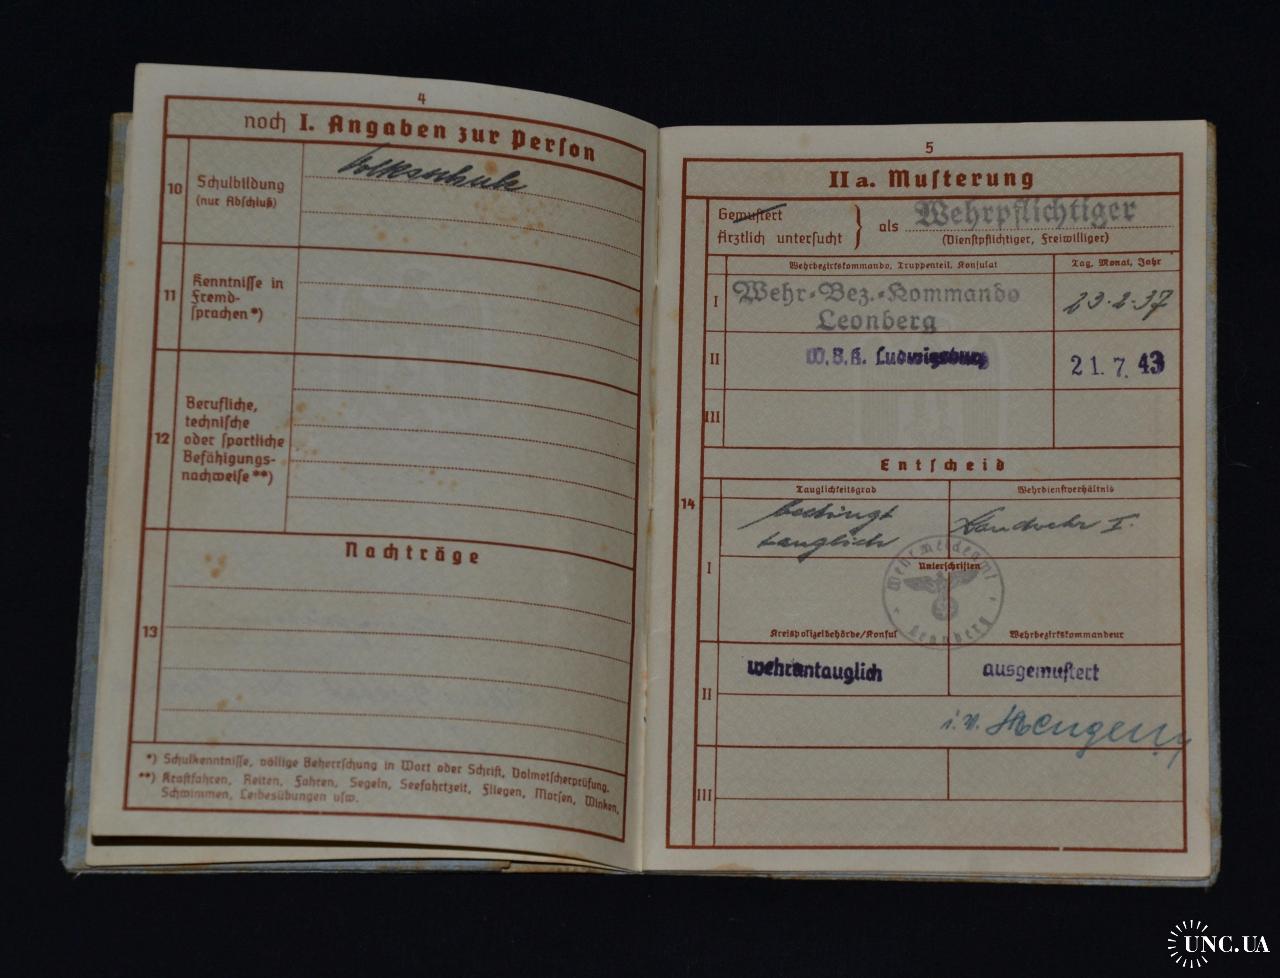 4
noch I. Angaben zur Person
10
Schulbildung
(nur Abschluß)
Volksschule
11
Kenntnisse in
Fremd-
sprachen*)
12
Berufliche,
technische
oder sportliche
Befähigungs-
nachweise**)
Nachträge
13
*) Schulkenntnisse, völlige Beherrschung in Wort oder Schrift, Dolmetscherprüfung.
**) Kraftfahren, Reiten, Fahren, Segeln, Seefahrtzeit, Fliegen, Morsen, Winken,
Schwimmen, Leibesübungen usw.
5
IIa. Musterung
Gemustert
Ärztlich untersucht } als Wehrpflichtiger
(Dienstpflichtiger, Freiwilliger)
Wehrbezirkskommando, Truppenteil, Konsulat
Tag, Monat, Jahr
I
Wehr-Bez.-Kommando
Leonberg
23.2.37
II
W.B.K. Ludwigsburg
21. 7. 43
III
Entscheid
14
Tauglichkeitsgrad
Wehrdienstverhältnis
I
bedingt
tauglich
Landwehr I.
Unterschriften
Wehrmeldeamt
Leonberg
Kreispolizeibehörde/Konsul
Wehrbezirkskommandeur
II
wehruntauglich
ausgemustert
i.V.
III
UNC.UA